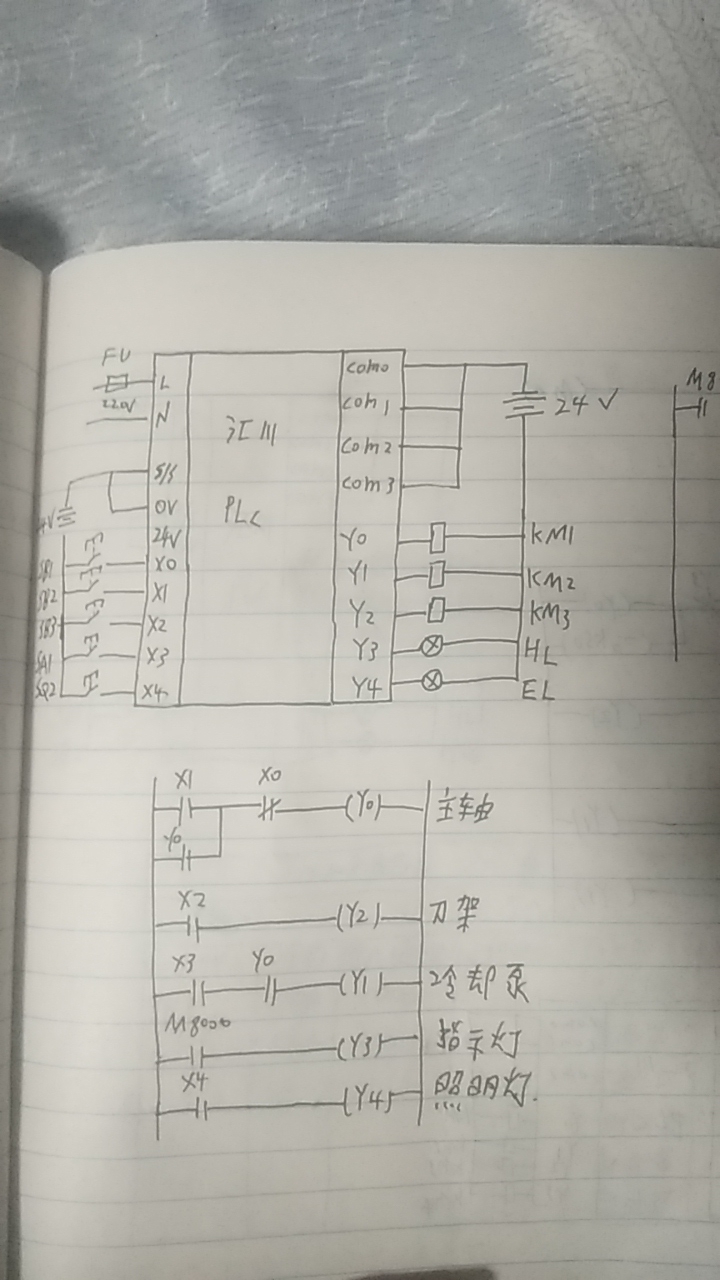 FU
L
220V
N
S/S
0V
24V
X0
X1
X2
X3
X4
4V
SB1
SB2
SB3
SA1
SQ2
汇川
PLC
com0
com1
com2
com3
Y0
Y1
Y2
Y3
Y4
24V
KM1
KM2
KM3
HL
EL
M8
X1 X0 (Y0) 主轴
Y0
X2 (Y2) 刀架
X3 Y0 (Y1) 冷却泵
M8000 (Y3) 指示灯
X4 (Y4) 照明灯.